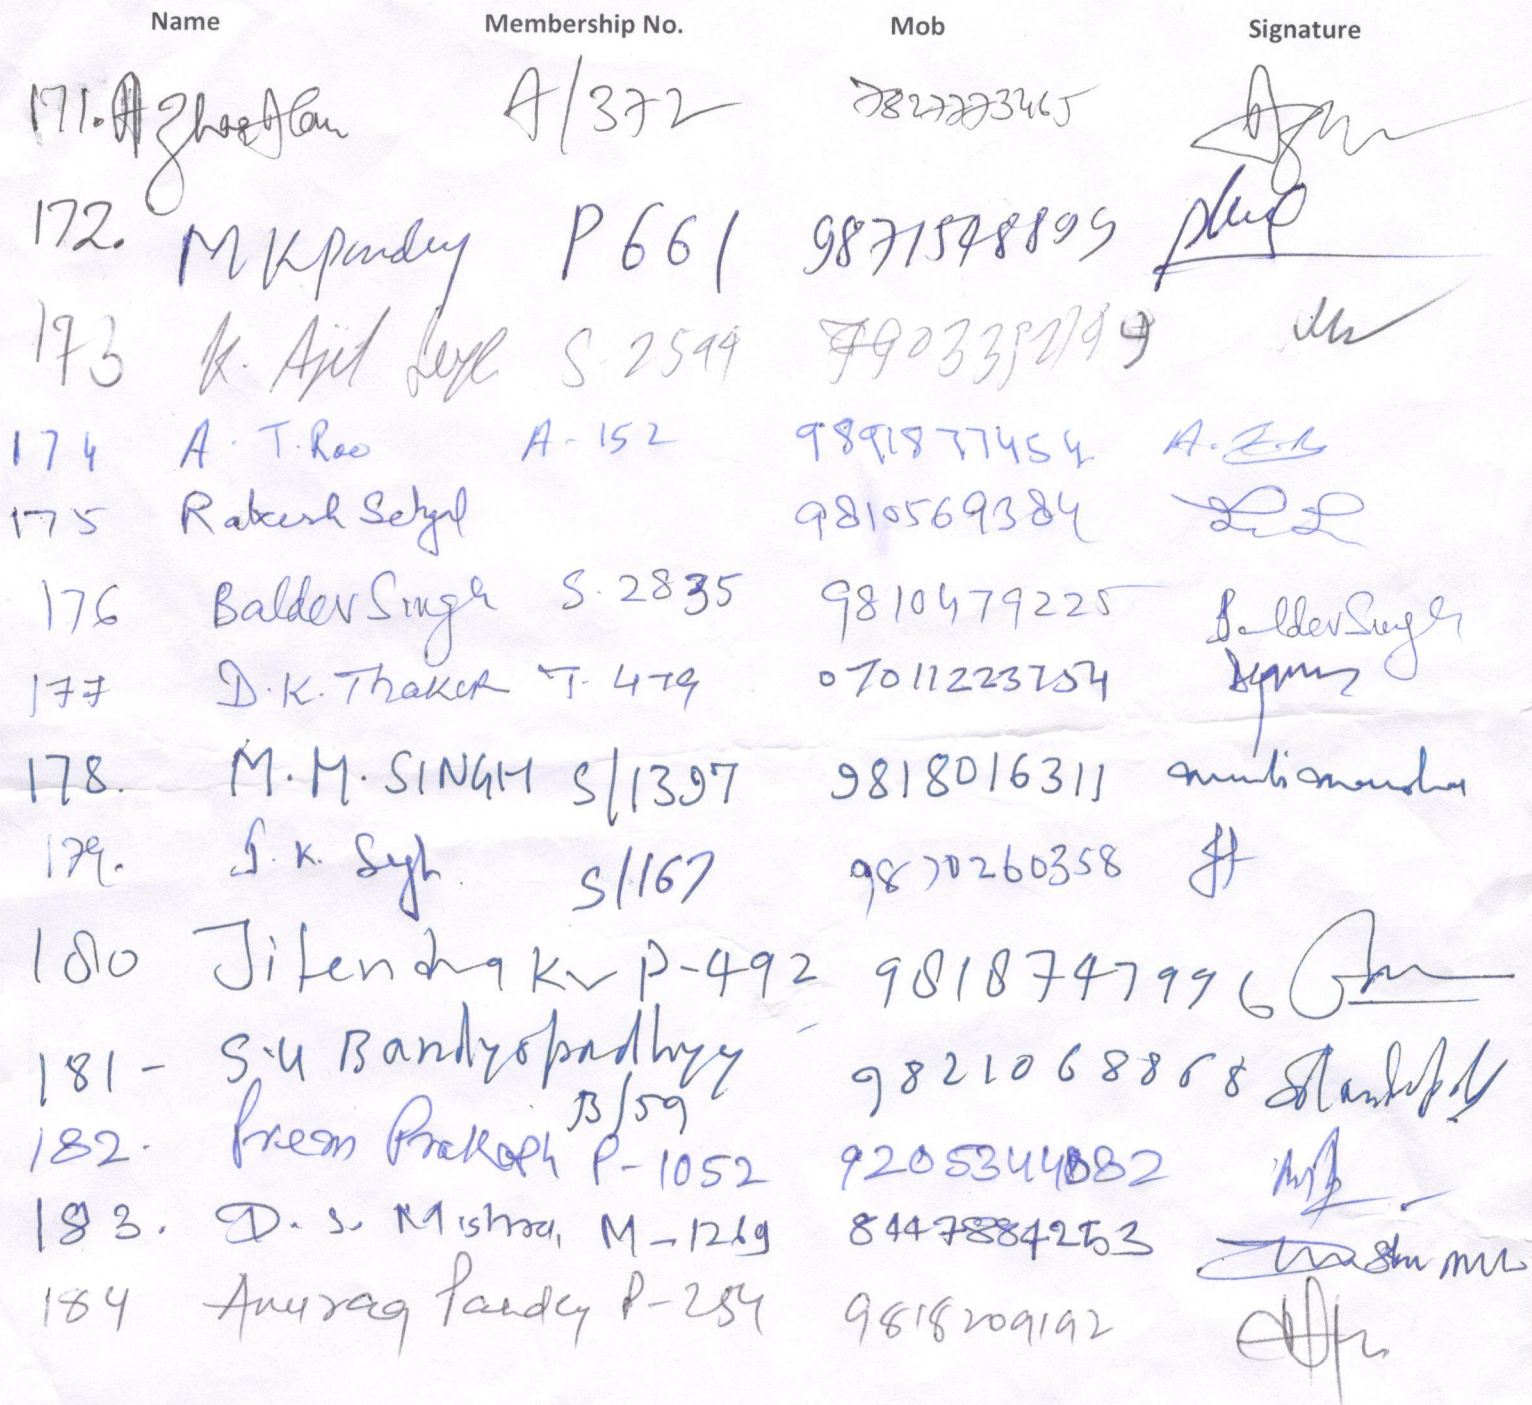 Name Membership No. Mob Signature
171. A/372 7827773465
172. M K Pandey P 661 9871548899
173 K. Ajit S. 2599
174 A. T. Rao A-152 9891877454
175 Rakesh Sehgal 9810569384
176 Baldev Singh S. 2835 9810479225 Baldev Singh
177 D.K. Thaker T. 479 07011223754
178. M. M. SINGH S/1397 9818016311
179. S. K. Singh S/167 9870260358
180 Jitendra Kr P-492 9818747996
181- Bandyopadhyay 9821068868
B/59
182. Prem Prakash P-1052
183. D. S. Mishra, M-1269 8447884253
184 Anurag Pandey P-254 9818209192